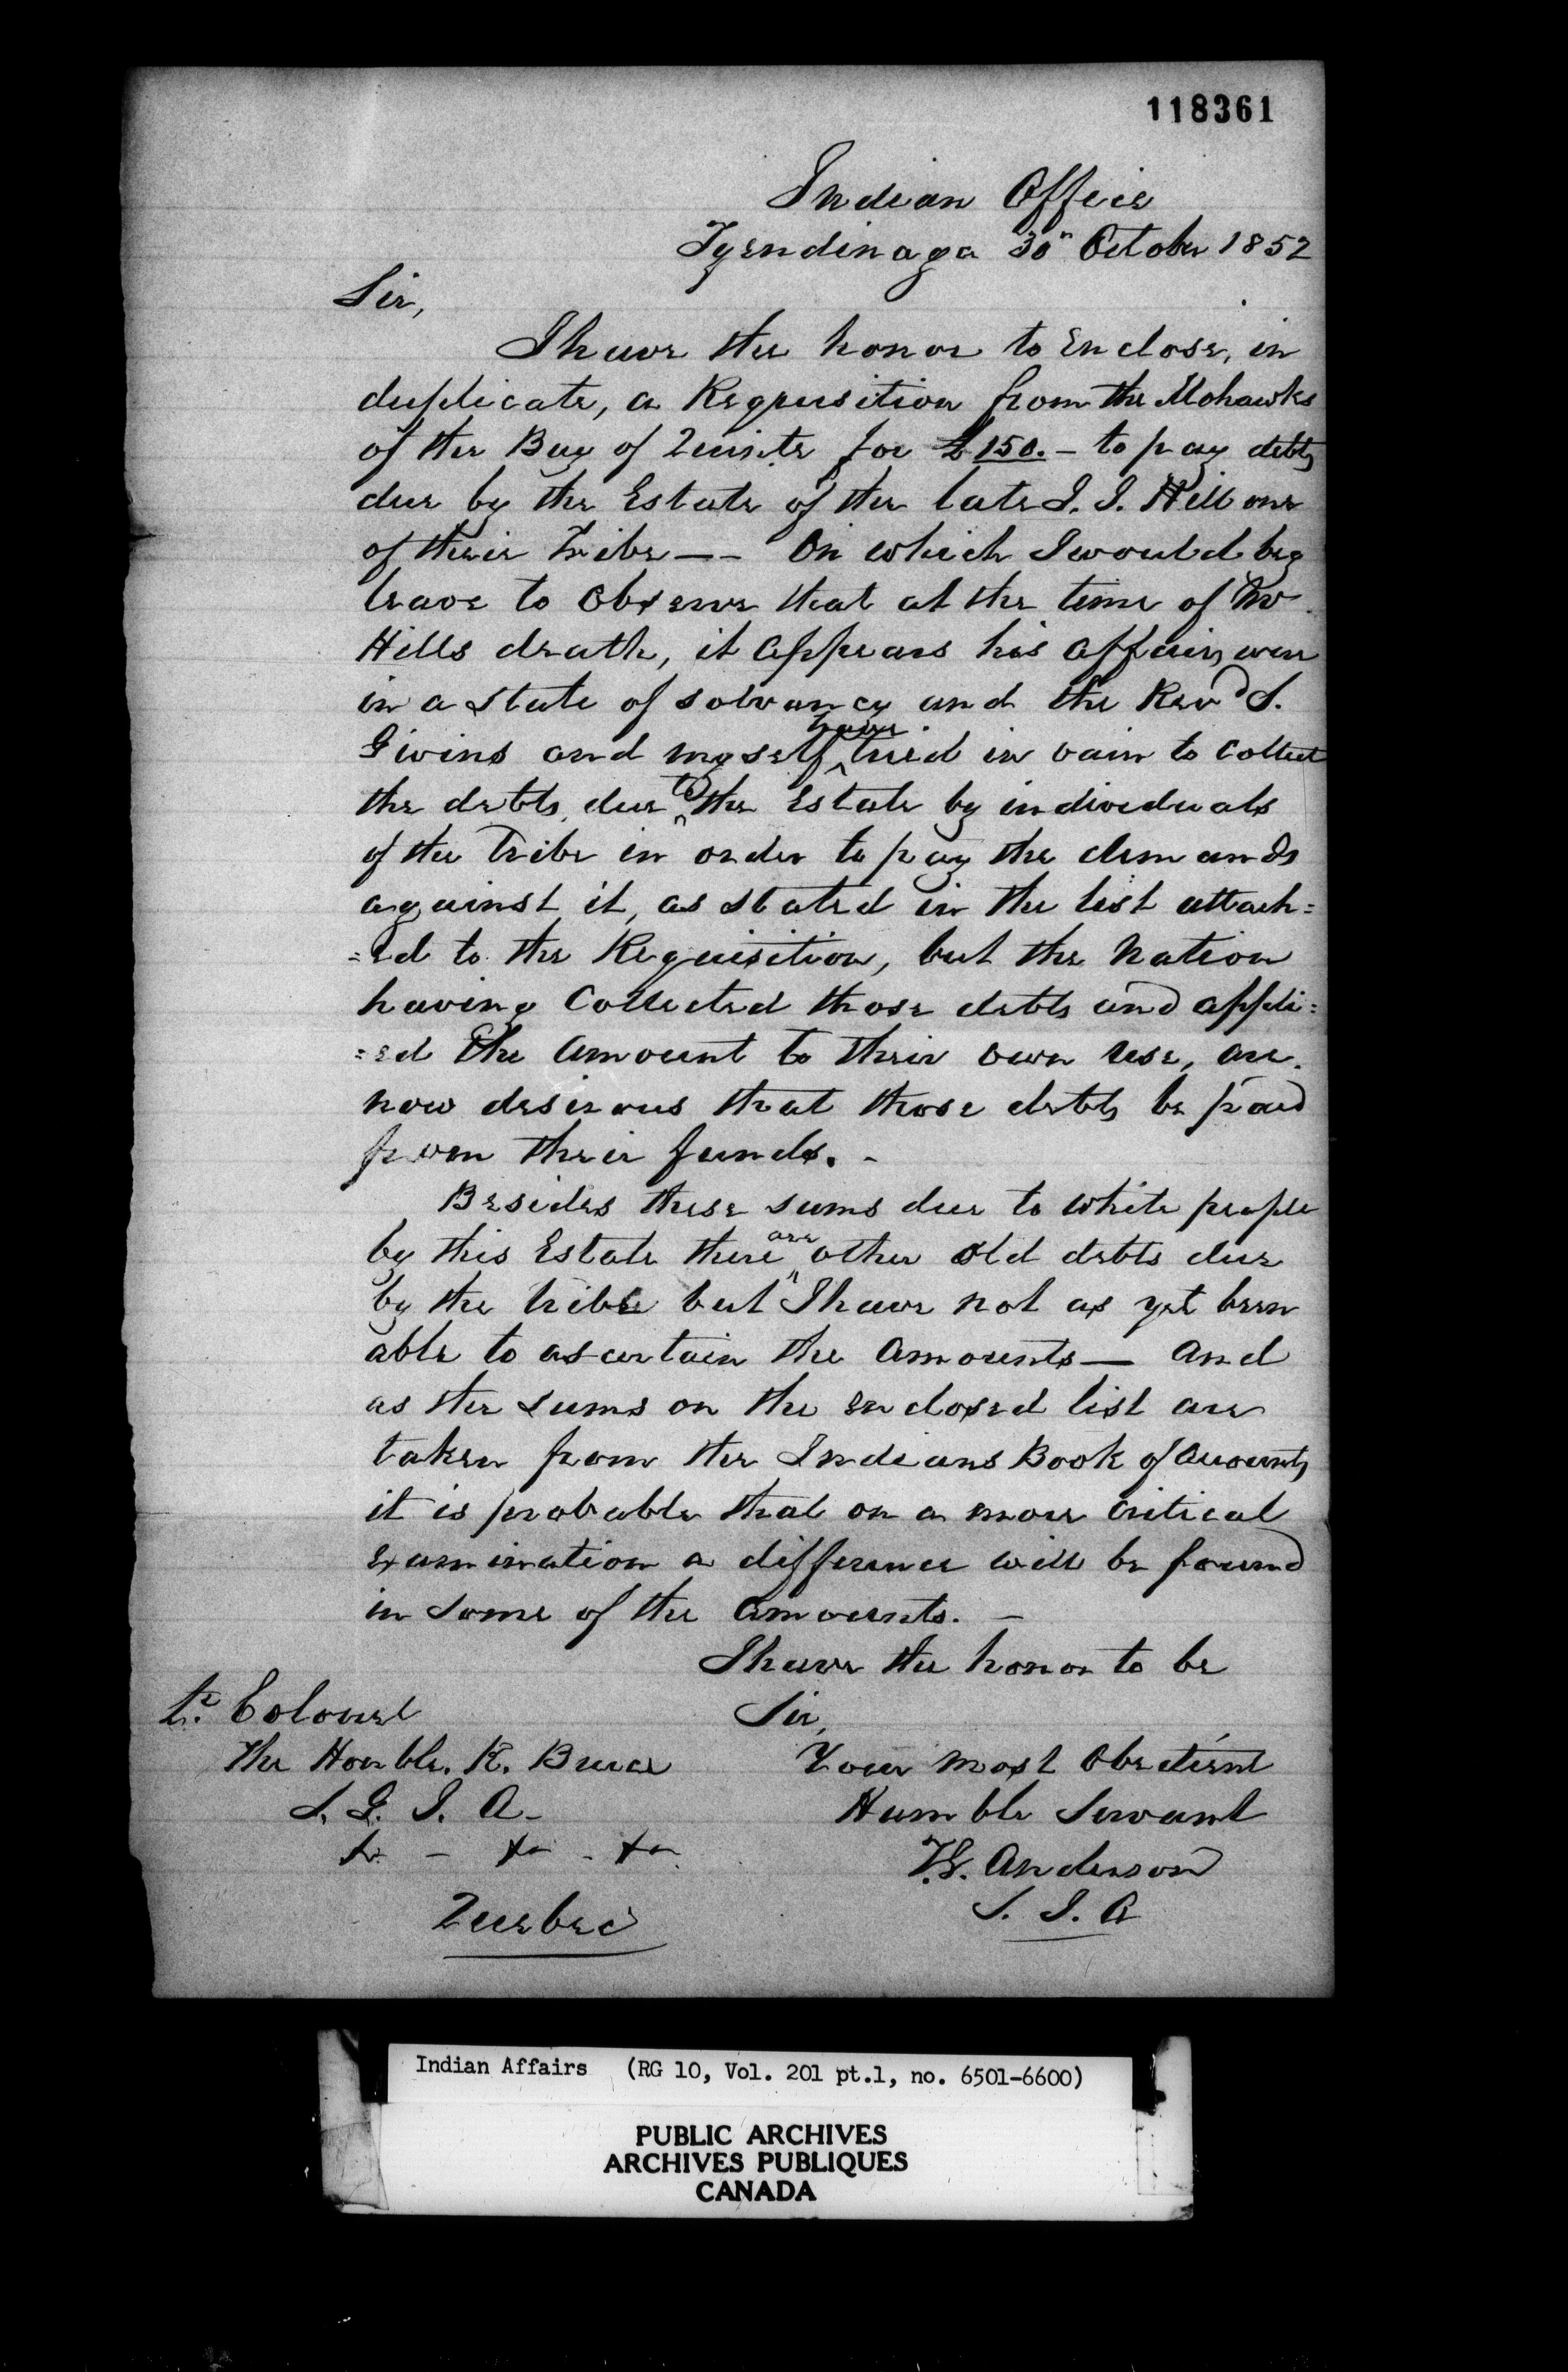 118361
Indian Office
Tyendinaga 30" October 1852
Sir,
I have the honor to Enclose, in
duplicate, a Requisition from the Mohawks
of the Bay of Quinte for £150.- to pay debts
due by the Estate of the late J. J. Hill one
of their Tribe -- On which I would beg
leave to Observe that at the time of Mr
Hills death, it appears his affairs were
in a state of solvancy and the Revd S.
Givins and myself have tried in vain to Collect
the debts, due to the Estate by individuals
of the Tribe in order to pay the demands
against it, as stated in the list attach=
=ed to the Requisition, but the Nation
having Collected those debts and appli=
=ed the Amount to their own use, are
now desirous that those debts be paid
from their funds. -
Besides these sums due to white people
by this Estate there are other old debts due
by the tribe but I have not as yet been
able to ascertain the Amounts — And
as the sums on the enclosed list are
taken from the Indians Book of Accounts
it is probable that on a more critical
examination a difference will be found
in some of the Amounts. -
I have the honor to be
Sir,
Your most Obedient
Humble Servant
T.G. Anderson
S. I. A
Lt. Colonel
The Honble. R. Bruce
S. G. I. A-
Quebec
Indian Affairs (RG 10, Vol. 201 pt.1, no. 6501-6600)
PUBLIC ARCHIVES
ARCHIVES PUBLIQUES
CANADA